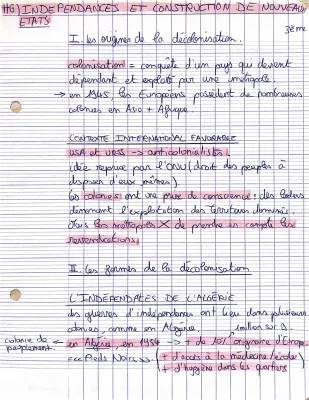 H6) INDEPENDANCES ET CONSTRUCTION DE NOUVEAUX
ETATS
3ème
I. Les origines de la décolonisation.
colonisation = conquête d'un pays qui devient
dépendant et exploité par une métropole.
→ en 1945 les Européens possèdent de nombreuses
colonies en Asie + Afrique.
CONTEXTE INTERNATIONAL FAVORABLE
USA et URSS → anticolonialistes.
idée reprise par l'ONU (droit des peuples à
disposer d'eux mêmes).
Les colonies ont une prise de conscience : des leaders
dénoncent l'exploitation des territoires dominés.
Mais les métropoles X de prendre en compte les
revendications.
II. Les formes de la décolonisation
L'INDÉPENDANCE DE L'ALGÉRIE
des guerres d'indépendance ont lieu dans plusieurs
colonies, comme en Algérie.
1 million sur 9.
colonie de
peuplement.
← en Algérie, en 1954 → + de 10% originaire d'Europe
=<< Pieds Noirs >>.
+ d'accès à la médecine/école
+ d'hygiène dans les quartiers